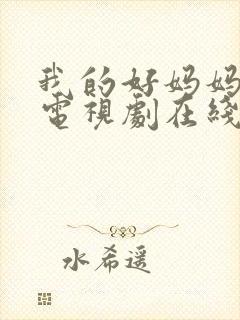 我的好妈妈
電視劇在綫
水希遥